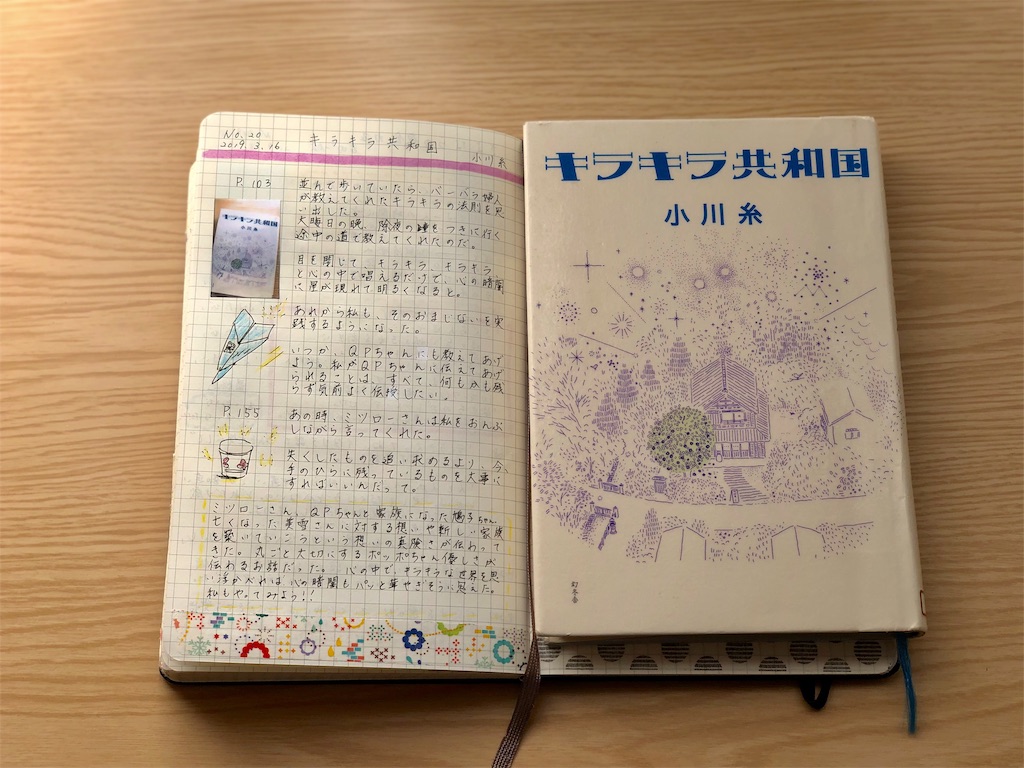 No. 20
2019. 3. 16
キラキラ共和国
小川糸
P. 103
並んで歩いていたら、バーバラ婦人
が教えてくれたキラキラの法則を思
い出した。
大晦日の晩、除夜の鐘をつきに行く
途中の道で教えてくれたのだ。
目を閉じて、キラキラ、キラキラ、
と心の中で唱えるだけで、心の暗闇
に星が現れて明るくなると。
あれから私も、そのおまじないを実
践するようになった。
いつか、QPちゃんにも教えてあげ
よう。私がQPちゃんに伝えてあげ
られることは、すべて、何もかも残
らず気前よく伝授したい。
P. 155
あの時、ミツローさんは私をおんぶ
しながら言ってくれた。
失くしたものを追い求めるより、今、
手のひらに残っているものを大事に
すればいいんだって。
ミツローさん、QPちゃんと家族になった鳩子ちゃん
亡くなった美雪さんに対する想いや新しい家族
を築いていこうという想いの真険さが伝わって
きた。丸ごと大切にするポッポちゃん優しさが
伝わるお話だった。 心の中で、キラキラな世界を思
い浮かべれば心の暗闇もパッと華やぎそうに思えた。
私もやってみよう!!
キラキラ共和国
小川糸
キラキラ共和国
小川糸
幻冬舎